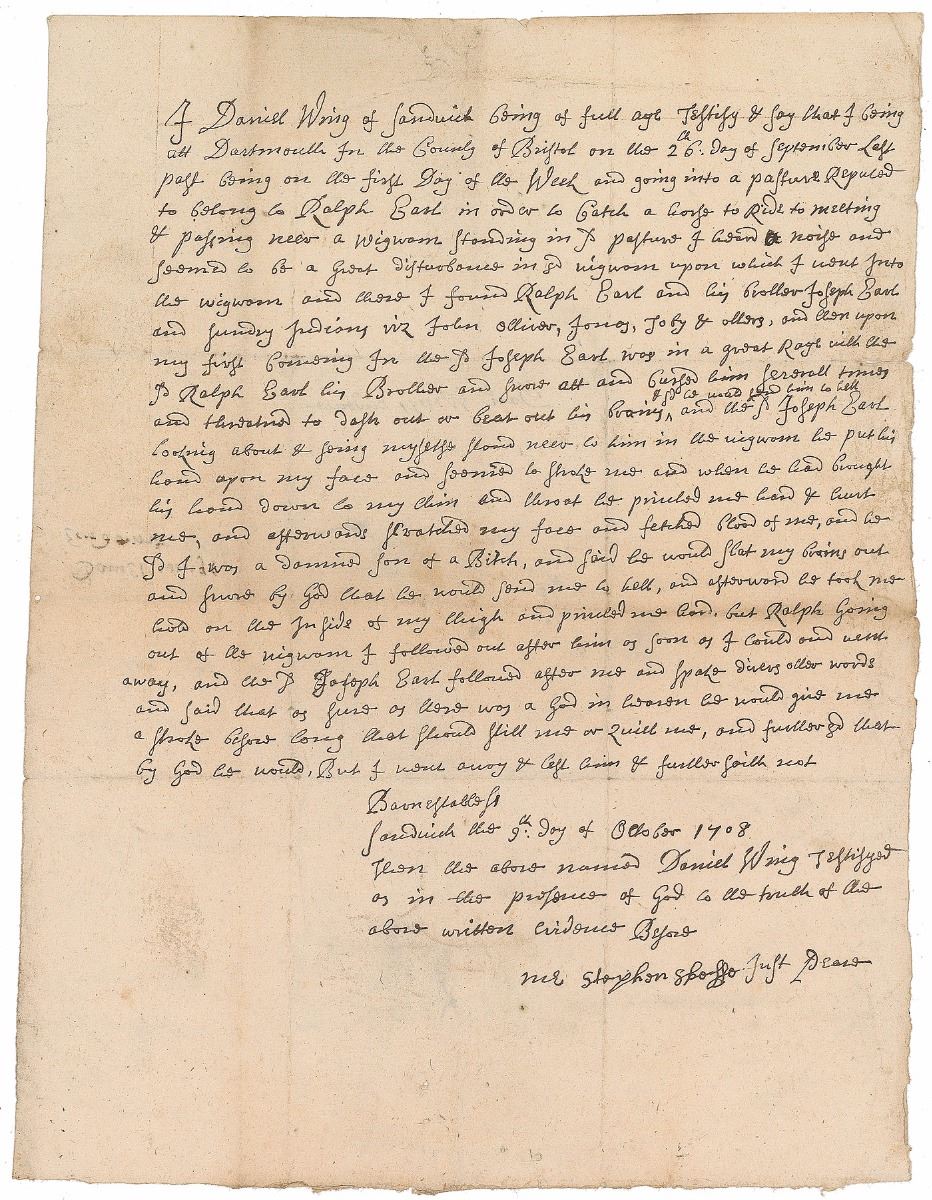 I Daniell Wing of Sandwich being of full age Testify & say that I being
att Dartmouth In the County of Bristol on the 26th. day of September Last
past being on the first Day of the Week and going into a pasture Reputed
to belong to Ralph Earl in order to Catch a horse to Ride to meeting
& passing neer a wigwam standing in sd pasture I heard a noise and
seemed to be a Great disturbance in sd wigwam upon which I went Into
the wigwam and there I found Ralph Earl and his brother Joseph Earl
and sundry Indians viz John Elliver, Jonas, Toby & others, and then upon
my first Comeing In the sd Joseph Earl was in a great Rage with the
sd Ralph Earl his Brother and swore att and Cursed him severall times
& sd he would send him to hell
and threatned to dash out or beat out his brains, and the sd Joseph Earl
looking about & seing myselfe stand neer to him in the wigwam he put his
hand upon my face and seemed to stroke me and when he had brought
his hand down to my Chin and throat he pinched me hard & hurt
me, and afterwards scratched my face and fetched blood of me, and he
sd I was a damned son of a Bitch, and said he would slat my brains out
and swore by God that he would send me to hell, and afterward he took me
hold on the Inside of my thigh and pinched me hard. but Ralph Going
out of the wigwam I followed out after him as soon as I could and went
away, and the sd Joseph Earl followed after me and spake divers other words
and said that as sure as there was a God in heaven he would give me
a stroke before long that should still me or Quill me, and further sd that
by God he would, But I went away & left him & further saith not
Barnestable ss
Sandwich the 9th. day of October 1708
Then the above named Daniell Wing Testifyed
as in the presence of God to the truth of the
above written Evidence Before
me Stephen Skeffe Just Peace